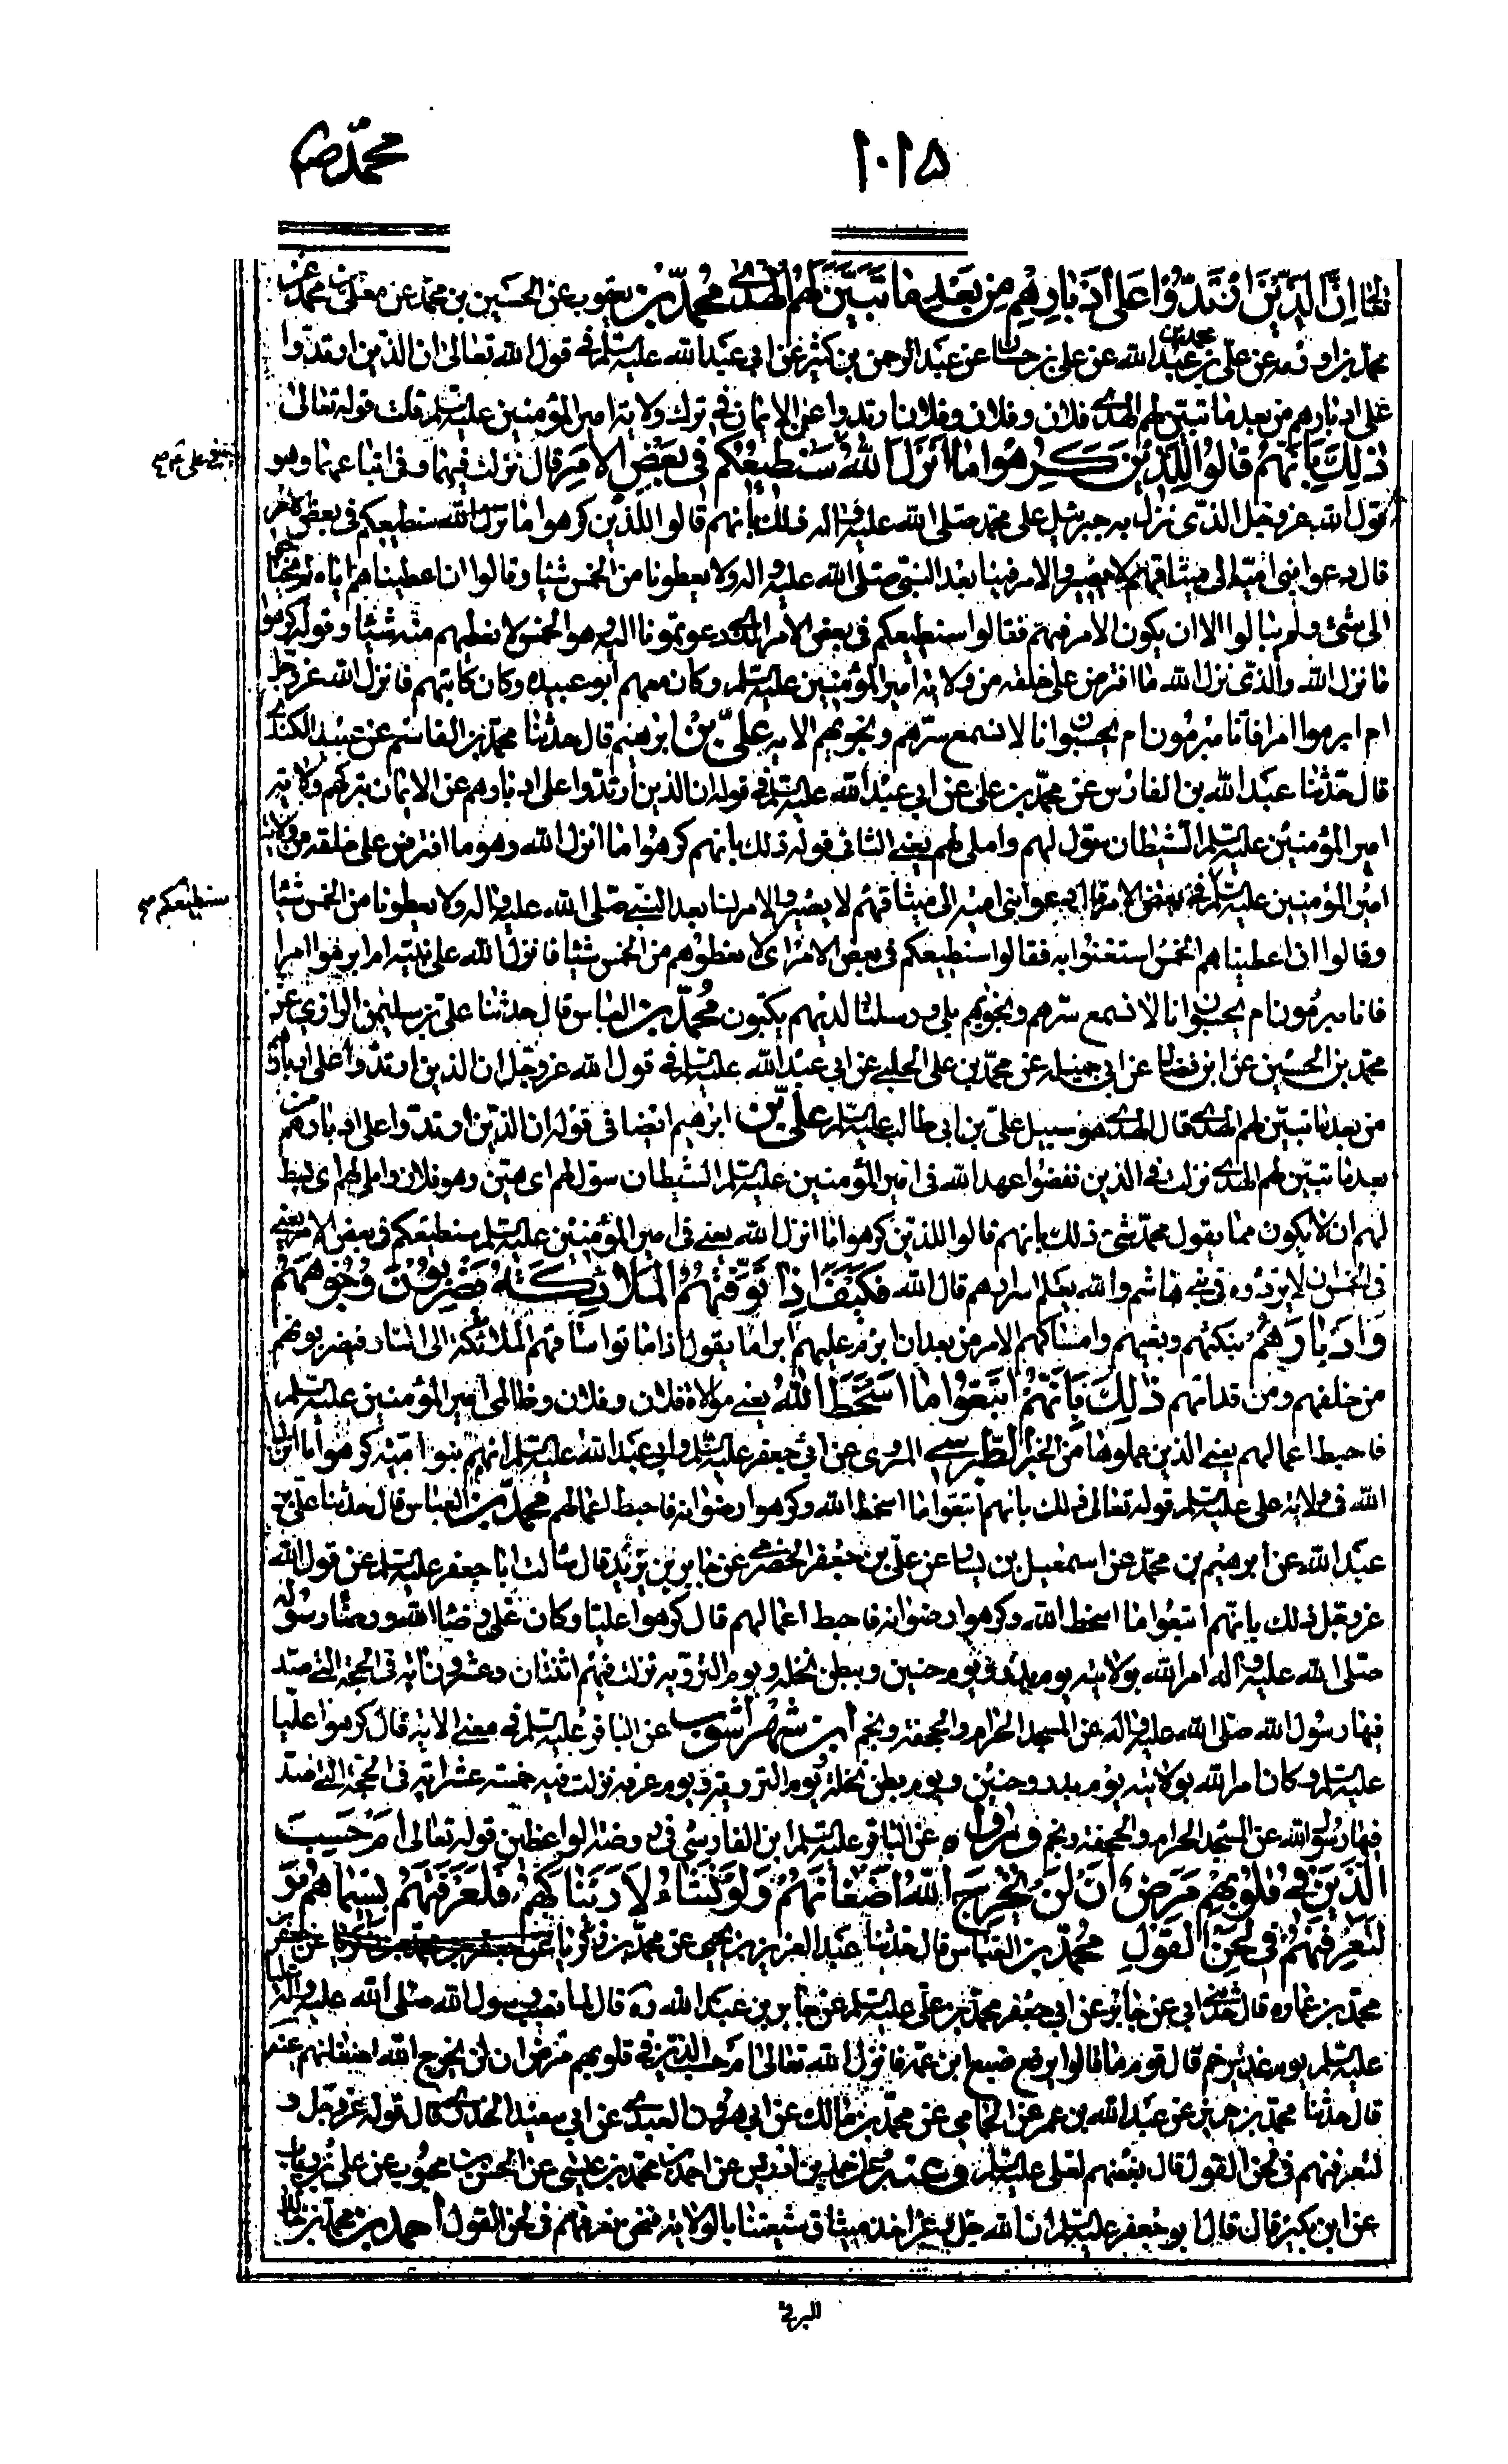 محمّد ص
١٠١٥
تعالى اِنَّ الَّذِيْنَ ارْتَدُّوْا عَلَى اَدْبَارِهِمْ مِنْ بَعْدِ مَا تَبَيَّنَ لَهُمُ الْهُدَى محُمّد بن يعقوب عن الحسَين بن محمّد عن معلى بن محمّد عن
محمّد بن اورمه عن علىّ بن عبد الله عن على بن حسان عن عبد الرحمن بن كثير عن ابى عبد الله عليه السّلم فى قول الله تعالى ان الذين ارتدّوا
على ادبارهم من بعد ما تبيّن لهم الهدى فلان و فلان و فلان ارتدوا عن الايمان فى ترك ولاية امير المؤمنين عليه السّلم قلت قوله تعالى
ذٰلِكَ بِاَنَّهُمْ قَالُوا لِلَّذِيْنَ كَرِهُوا مَا اَنْزَلَ اللهُ سَنُطِيعُكُمْ فِى بَعْضِ الْاَمْرِ قال نزلت فيهما و فى اتباعهما و هو
قول الله عز و جل الذى نزل به جبرئيل على محمّد صلى الله عليه و اله ذلك بانهم قالوا للذين كرهوا ما نزل الله سنطيعكم فى بعض الامر
قال دعوا بنى اميّة الى ميثاقهم لا يصيّروا الامر فينا بعد النبىّ صلى الله عليه و اله و لا يعطونا من الخمس شيئا و قالوا ان اعطيناهم اياه لم يحتاجوا
الى شئ و لم يبالوا الا ان يكون الامر فيهم فقالوا سنطيعكم فى بعض الامر الذى دعوتمونا اليه و هو الخمس لا نعطيهم منه شيئا و قوله كرهوا
ما نزل الله و الذى نزل الله ما افترض على خلقه من ولاية امير المؤمنين عليه السّلم و كان معهم ابو عبيده و كان كاتبهم فانزل الله عز و جل
ام ابرموا امرا فانا مبرمون ام يحسبون انا لا نسمع سرّهم و نجويهم الاية علىّ بن ابرهيم قال حدثنا محمّد بن القاسم عن عبيد الكندى
قال حدّثنا عبد الله بن الفارس عن محمّد بن على عن ابى عبد الله عليه السّلم فى قوله ان الذين ارتدّوا على ادبارهم عن الايمان بتركهم ولاية
امير المؤمنين عليه السّلم الشيطان سول لهم و املى لهم يعنى الثانى قوله ذلك بانهم كرهوا ما انزل الله و هو ما افترض على خلقه من ولاية
امير المؤمنين عليه السّلم فى بعض الامر قال دعوا بنى اميّة الى ميثاقهم لا يصيّروا الامر لنا بعد النبى صلّى الله عليه و اله و لا يعطونا من الخمس شيئا
سنطيعكم
و قالوا ان اعطيناهم الخمس استغنوا به فقالوا سنطيعكم فى بعض الامر اى لا تعطوهم من الخمس شيئا فانزل الله على نبيّه ام ابرموا امرا
فانا مبرمون ام يحسبون انا لا نسمع سرّهم و نجويهم بلى و رسلنا لديهم يكتبون محُمّد بن العباس قال حدثنا على بن سليمن الرازى عن
محمّد بن الحسين عن ابن فضال عن ابى جميله عن محمّد بن على الحلبى عن ابى عبد الله عليه السّلم فى قول الله عز و جل ان الذين ارتدّوا على ادبارهم
من بعد ما تبيّن لهم الهدى قال الهدى هو سبيل علىّ بن ابى طالب عليه السّلم علىّ بن ابرهيم ايضا فى قوله ان الذين ارتدّوا على ادبارهم من
بعد ما تبيّن لهم الهدى نزلت فى الذين نقضوا عهد الله فى امير المؤمنين عليه السّلم الشيطان سول لهم اى هيّن و هو فلان و املى لهم اى بسط
لهم ان لا يكون مما يقول محمّد شئ ذلك بانهم قالوا للذين كرهوا ما انزل الله يعنى فى امير المؤمنين عليه السّلم سنطيعكم فى بعض الامر يعنى
فى الخمس ان لا يردّوه فى بنى هاشم و الله يعلم اسرارهم قال الله فَكَيْفَ اِذَا تَوَفَّتْهُمُ الْمَلَائِكَةُ يَضْرِبُوْنَ وُجُوْهَهُمْ
وَ اَدْبَارَهُمْ بنكثهم و بغيهم و امساكهم الامر من بعد ان ابرم عليهم ابراما يقول اذا ماتوا ساقتهم الملائكة الى النار فيضربونهم
من خلفهم و من قدامهم ذٰلِكَ بِاَنَّهُمُ اتَّبَعُوْا مَا اَسْخَطَ اللهُ يعنى موالاة فلان و فلان و ظالمى امير المؤمنين عليه السّلم
فاحبط اعمالهم يعنى الذين عملوها من الخير الطبرسى المروى عن ابى جعفر عليه السّلم و ابى عبد الله عليه السّلم انهم بنو اميّة كرهوا ما انزل
الله فى ولاية على عليه السّلم قوله تعالى ذلك بانهم اتبعوا ما اسخط الله و كرهوا رضوانه فاحبط اعمالهم محمّد بن العباس قال حدثنا علىّ بن
عبد الله عن ابرهيم بن محمّد عن اسمعيل بن يسار عن علىّ بن جعفر الحضرمى عن جابر بن يزيد قال سالت ابا جعفر عليه السّلم عن قول الله
عز و جل ذلك بانّهم اتبعوا ما اسخط الله و كرهوا رضوانه فاحبط اعمالهم قال كرهوا عليا و كان علىّ رضا الله و رضا رسوله
صلى الله عليه و اله امر الله بولايته يوم بدر و يوم حنين و ببطن نخله و يوم التروية نزلت فيهم اثنتان و عشرون اية فى الحجة التى صدّ
فيها رسول الله صلى الله عليه و اله عن المسجد الحرام و الجحفة و بخم ابن شهراشوب عن الباقر عليه السّلم فى معنى الاية قال كرهوا عليا
عليه السّلم و كان امر الله بولايته يوم بدر و حنين و يوم بطن نخلة و يوم التروية و يوم عرفه نزلت فيه خمسة عشر اية فى الحجة التى صدّ
فيها رسول الله عن المسجد الحرام و الجحفة و بخم و رواه عن الباقر عليه السّلم ابن الفارسى فى روضة الواعظين قوله تعالى اَمْ حَسِبَ
الَّذِيْنَ فِى قُلُوْبِهِمْ مَرَضٌ اَنْ لَنْ يُخْرِجَ اللهُ اَضْغَانَهُمْ وَ لَوْ نَشَاءُ لَاَرَيْنَاكَهُمْ فَلَعَرَفْتَهُمْ بِسِيْمَاهُمْ وَ
لَتَعْرِفَنَّهُمْ فِى لَحْنِ الْقَوْلِ محُمّد بن العباس قال حدثنا عبد العزيز بن يحيى عن محمّد بن زكريا عن جعفر بن
محمّد بن عماره قال حدثنى ابى عن جابر عن ابى جعفر محمّد بن علىّ عليه السّلم عن جابر بن عبد الله ره قال لما نصب رسول الله صلى الله عليه و اله عليا
عليه السّلم يوم غدير خم قال قوم ما قالوا يرفع ضبع ابن عمه فانزل الله تعالى ام حسب الذين فى قلوبهم مرض ان لن يخرج الله اضغانهم عنه
قال حدثنا محمّد بن جرير عن عبد الله بن عمر عن الحمامى عن محمّد بن مالك عن ابى هرون العبدى عن ابى سعيد الخدرى قال قوله عز و جل و
لتعرفنهم فى لحن القول قال بغضهم لعلى عليه السّلم و عنه عن احمد بن ادريس عن احمد بن محمّد بن عيسى عن الحسن بن محبوب عن على بن رياب
عن ابن بكير قال قال ابو جعفر عليه السّلم ان الله جل و عز اخذ ميثاق شيعتنا بالولاية فنحن نعرفهم فى لحن القول احمد بن محمّد بن خالد
البرقى